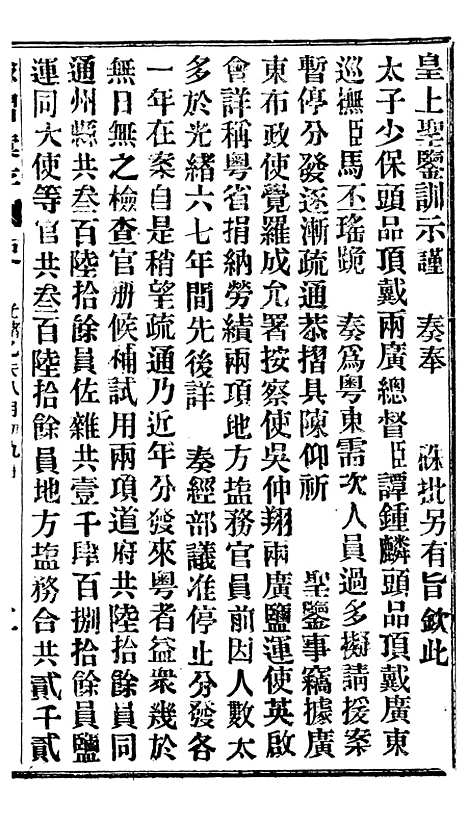 皇上聖鑒訓示謹　奏奉　硃批另有旨欽此
太子少保頭品頂戴兩廣總督臣譚鍾麟頭品頂戴廣東
巡撫臣馬丕瑤跪　奏爲粵東需次人員過多擬請援案
暫停分發逐漸疏通恭摺具陳仰祈　聖鑒事竊據廣
東布政使覺羅成允署按察使吳仲翔兩廣鹽運使英啟
會詳稱粵省捐納勞績兩項地方鹽務官員前因人數太
多於光緒六七年間先後詳　奏經部議准停止分發各
一年在案自是稍望疏通乃近年分發來粵者益衆幾於
無日無之檢查官册候補試用兩項道府共陸拾餘員同
通州縣共叁百陸拾餘員佐雜共壹千肆百捌拾餘員鹽
運同大使等官共叁百陸拾餘員地方鹽務合共貳千貳